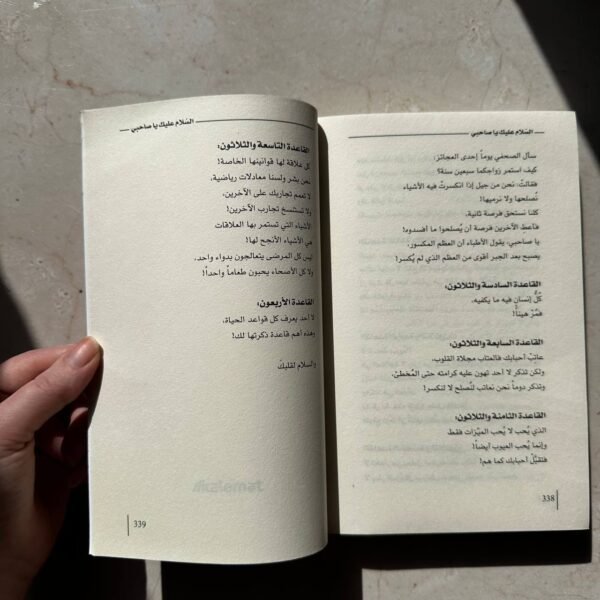 السّلام عليك يا صاحبي
سأل الصحفي يوماً إحدى العجائز:
كيف استمر زواجكما سبعين سنة؟
فقالتْ: نحن من جيل إذا انكسرتْ فيه الأشياء
نُصلحها ولا نرميها!
كلنا نستحق فرصة ثانية،
فأعط الآخرين فرصة أن يُصلحوا ما أفسدوه!
يا صاحبي، يقول الأطباء أن العظم المكسور،
يصبح بعد الجبر أقوى من العظم الذي لم يُكسر!
القاعدة السادسة والثلاثون:
كُلُّ إنسانٍ فيه ما يكفيه،
فمُرَّ هيناً!
القاعدة السابعة والثلاثون:
عاتِبْ أحبابك فالعتاب مجلاة القلوب،
ولكن تذكر لا أحد تهون عليه كرامته حتى المُخطئ،
وتذكر دوماً نحن نعاتب لنُصلح لا لنكسر!
القاعدة الثامنة والثلاثون:
الذي يُحب لا يُحب الميّزات فقط،
وإنما يُحب العيوب أيضاً!
فتقبَّلْ أحبابك كما هم!
338
السّلام عليك يا صاحبي
القاعدة التاسعة والثلاثون:
كل علاقة لها قوانينها الخاصة!
نحن بشر ولسنا معادلات رياضية،
لا تعمم تجاربك على الآخرين،
ولا تستنسخ تجارب الآخرين!
الأشياء التي تستمر بها العلاقات
هي الأشياء الأنجح لها!
ليس كل المرضى يتعالجون بدواء واحد،
ولا كل الأصحاء يحبون طعاماً واحداً!
القاعدة الأربعون:
لا أحد يعرف كل قواعد الحياة،
وهذه أهم قاعدة ذكرتها لك!
والسلام لقلبك
339